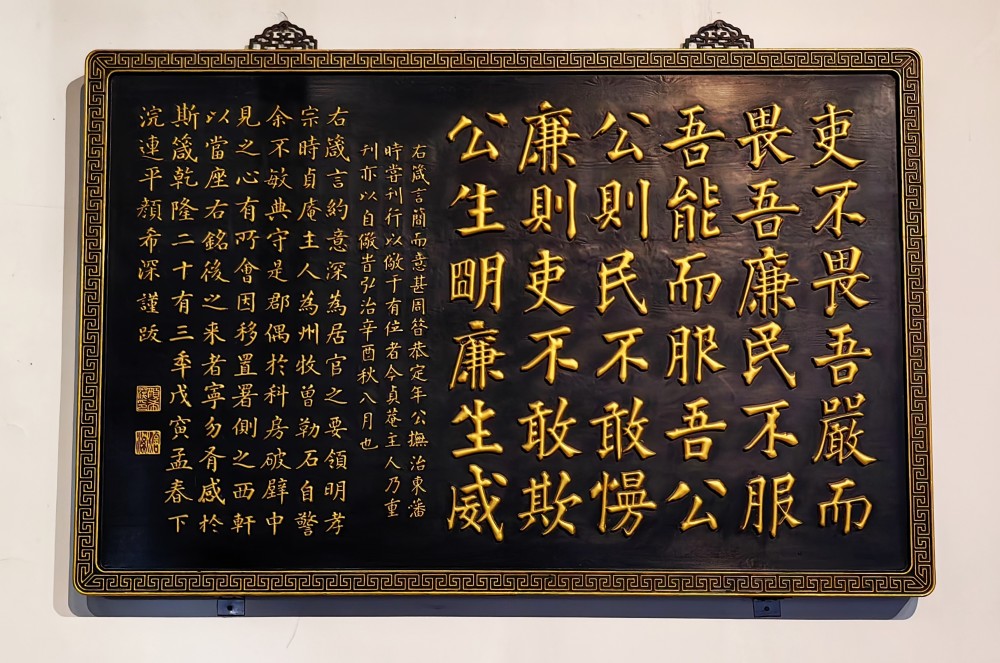 吏不畏吾嚴而
畏吾廉民不服
吾能而服吾公
公則民不敢慢
廉則吏不敢欺
公生明廉生威
右箴言簡而意甚周昝恭定年公撫治東藩
時嘗刊行以儆十有位者今貞菴主人乃重
刊亦以自儆旹弘治辛酉秋八月也
右箴言約意深為居官之要領明孝
宗時貞庵主人為州牧曾勒石自警
余不敏典守是郡偶於科房破壁中
見之心有所會因移置署側之西軒
以當座右銘後之来者寧勿有感於
斯箴乾隆二十有三年戊寅孟春下
浣連平顏希深謹跋